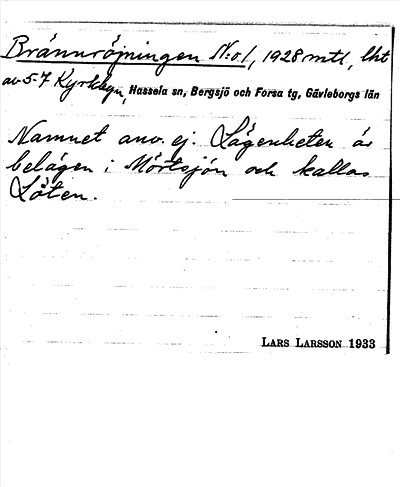 Brännröjningen N:o 1, 1928 mtl, lht
av 5-7 Kyrkbyn, Hassela sn, Bergsjö och Forsa tg, Gävleborgs län
Namnet anv. ej. Lägenheten är
belägen i Mörtsjön och kallas
Löten.
LARS LARSSON 1933